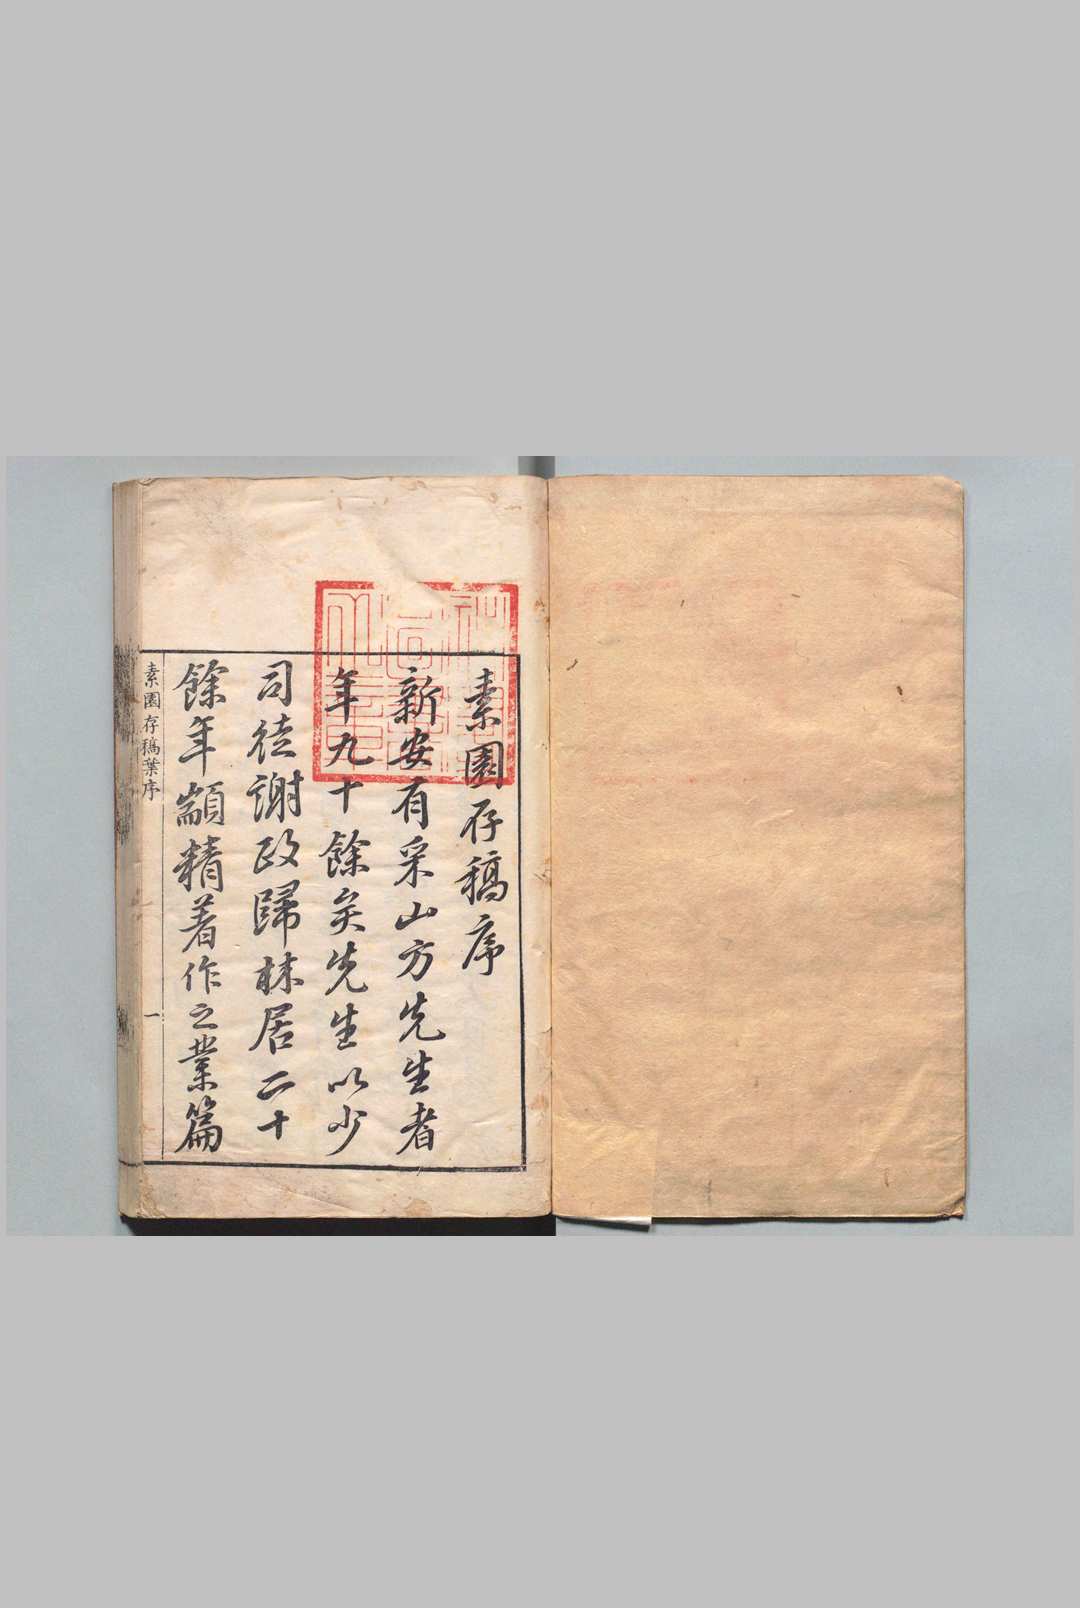 素園存稿序
新安有采山方先生者
年九十餘矣先生以少
司徒謝政歸林居二十
餘年顓精著作之業篇
素園存稿葉序
一